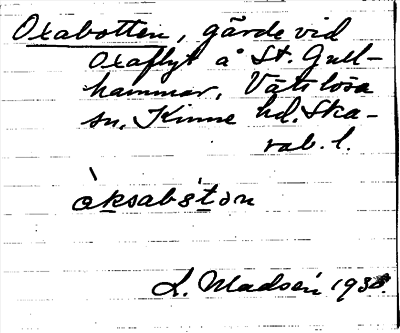 Oxabotten, gärde vid
Oxaflyt å St. Gull-
hammar, Vätlösa
sn, Kinne hd. Ska-
rab. l.
òksabåtən
L. Madsén 1938.